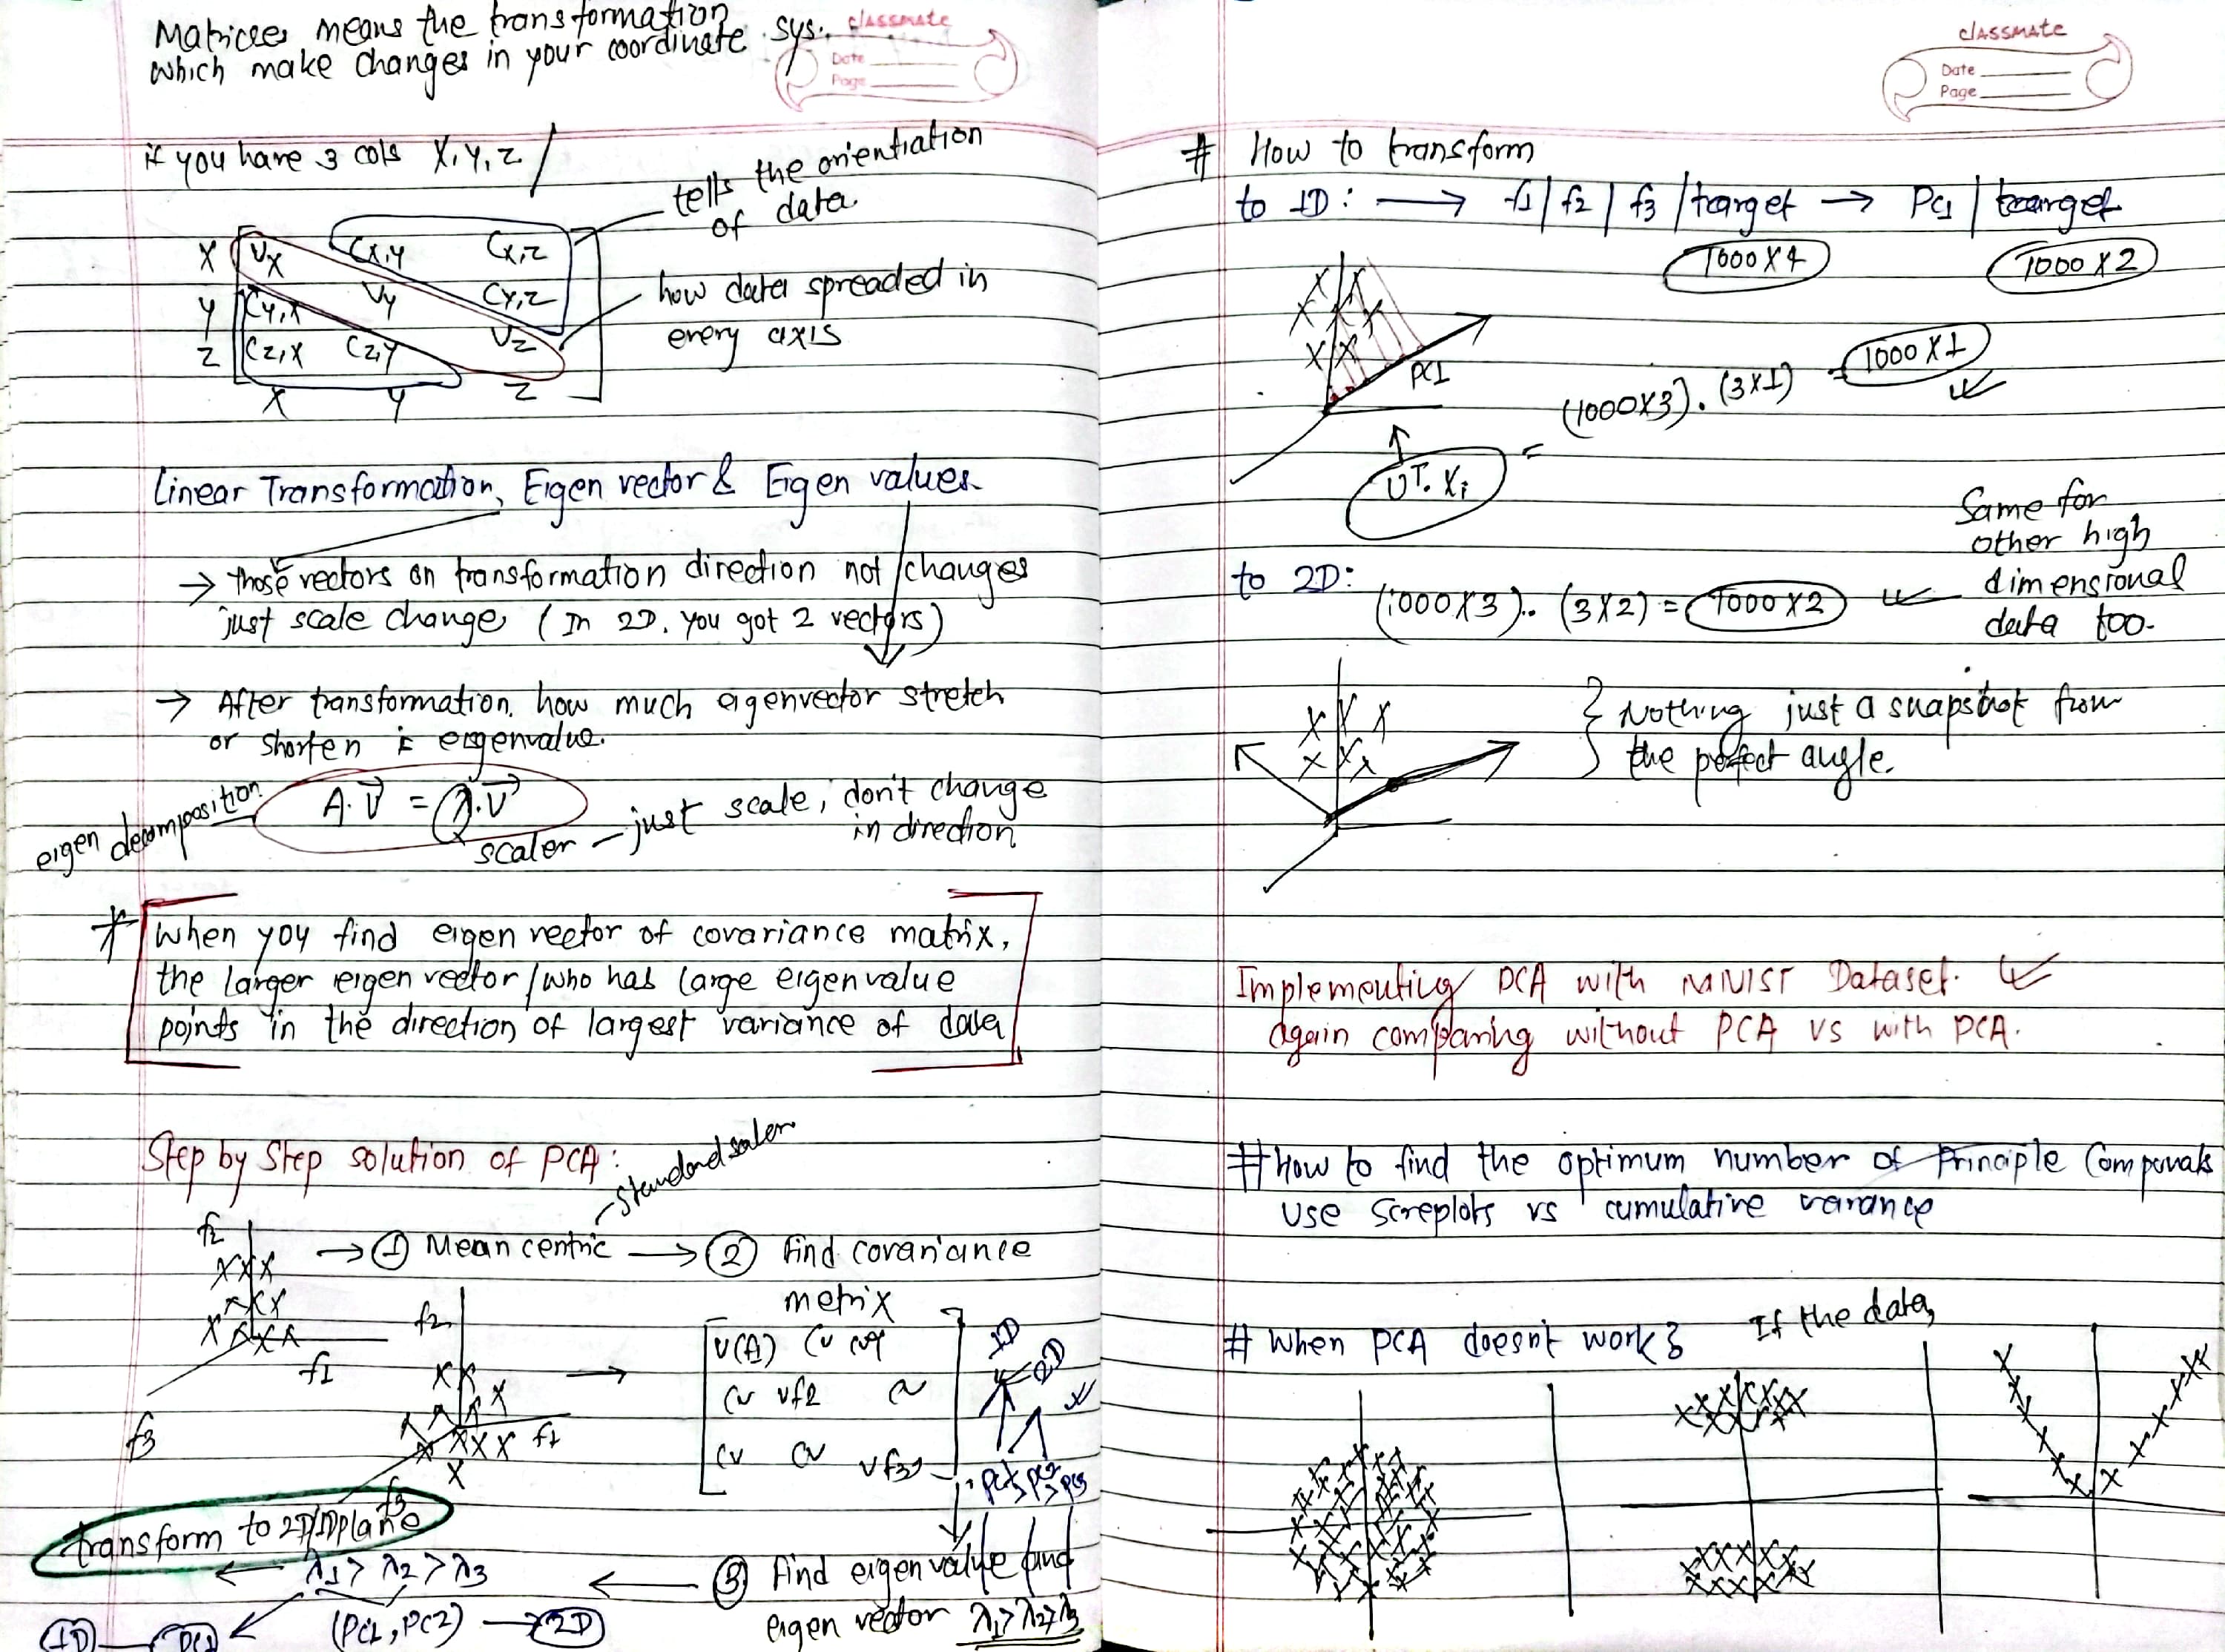 Matrices means the transformation
which make changes in your coordinate sys.
classmate
Date
Page
if you have 3 cols X, Y, Z
tells the orientiation
of data
X Vx Cx,y Cx,z
Y Cy,x Vy Cy,z
Z Cz,x Cz,y Vz
X Y Z
how data spreaded in
every axis
Linear Transformation, Eigen vector & Eigen values.
→ those vectors on transformation direction not changes
just scale change (In 2D, you got 2 vectors)
→ After transformation, how much eigenvector stretch
or shorten is eigenvalue.
eigen decomposition
A.v⃗ = λ.v⃗
scaler – just scale, don't change
in direction
* when you find eigen vector of covariance matrix,
the larger eigen vector / who has large eigenvalue
points in the direction of largest variance of data
Step by Step solution of PCA:
standard scaler
f2
→ ① Mean centric → ② find covariance
metrix
f1
f3
f2
f1
f3
V(A) Cv
Cv vf2
Cv Cv vf3
1D
2D
PC1 PC2 PC3
transform to 2D/1D plane
← λ1 > λ2 > λ3
← ③ find eigen value and
eigen vector λ1 > λ2 > λ3
(PC1, PC2) → 2D
1D PC1
classmate
Date
Page
# How to transform
to 1D: → f1 | f2 | f3 | target → PC1 | target
1000 X 4
1000 X 2
PC1
(1000X3) . (3X1) = 1000 X 1
UT. Xi =
Same for
other high
dimensional
data too.
to 2D: (1000X3). (3X2) = 1000 X 2
} Nothing just a snapshot from
the perfect angle.
Implementing PCA with MNIST Dataset.
again comparing without PCA vs with PCA.
# How to find the optimum number of Principle Componats
use Screplots vs cumulative varance
# when PCA doesn't work?
If the data,